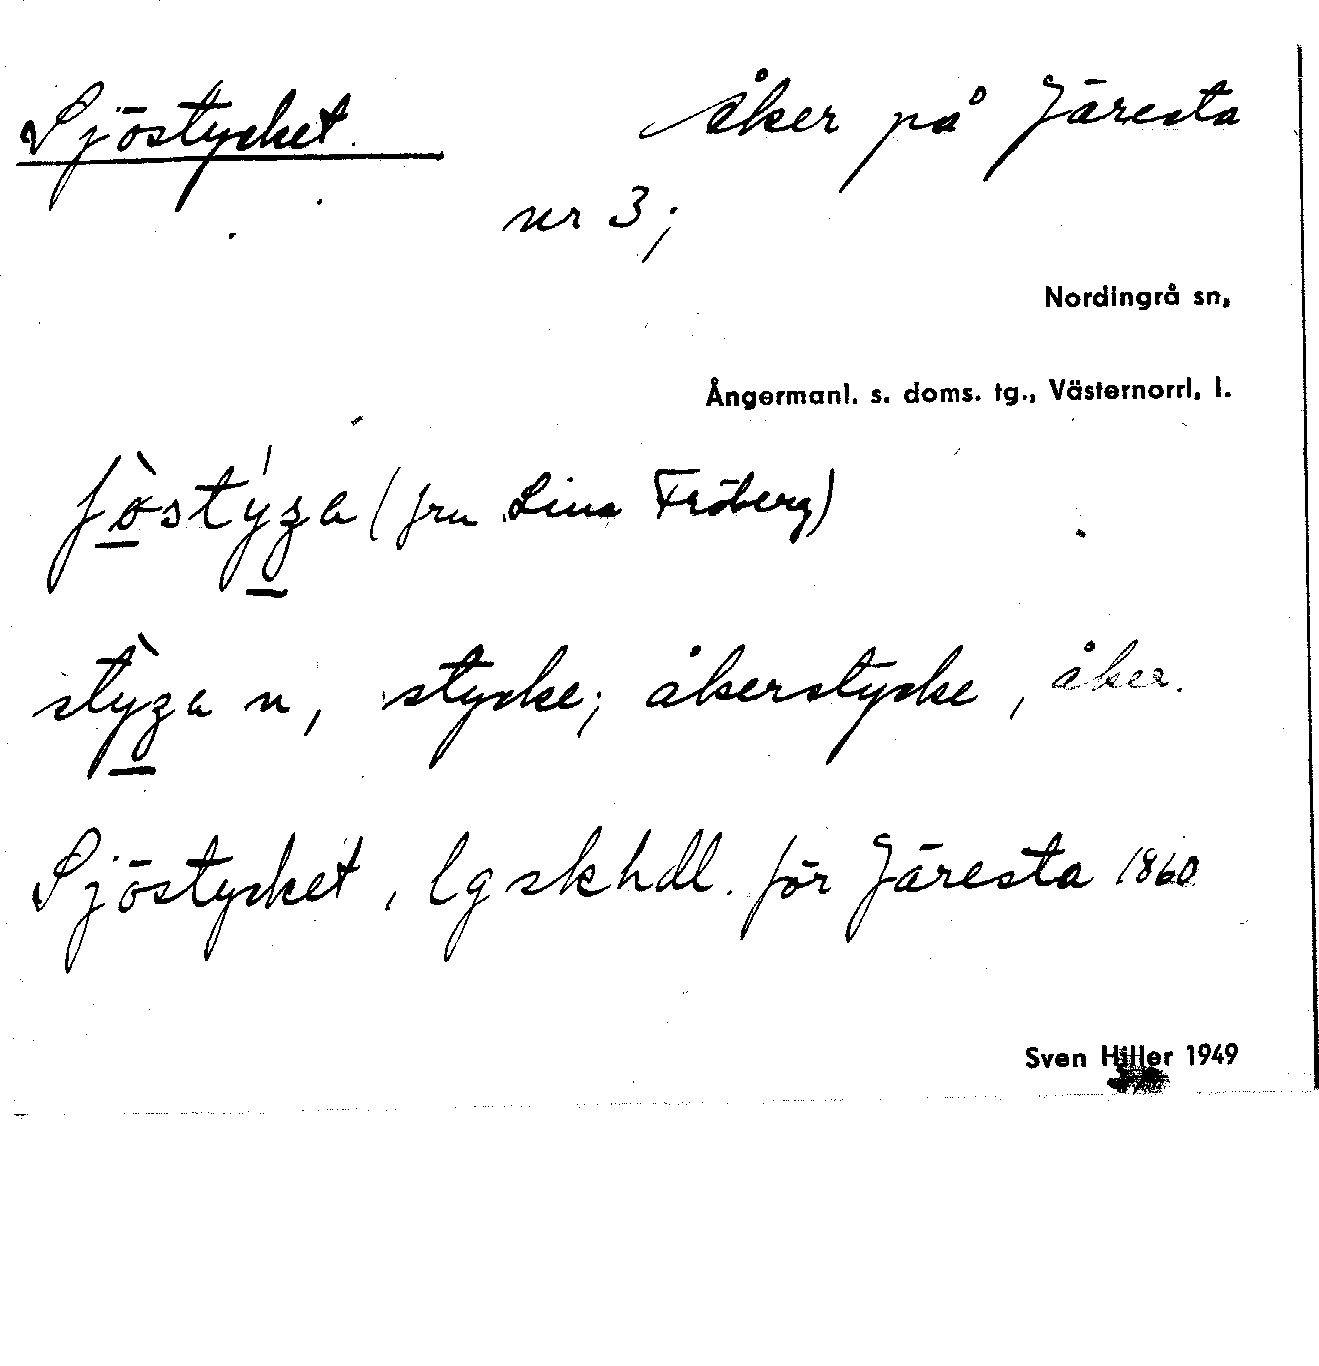 Sjöstycket. åker på Järesta
nr 3;
Nordingrå sn,
Ångermanl. s. doms. tg., Västernorrl. l.
(fru Lina Fröberg)
n, stycke; åkerstycke, åker.
Sjöstycket, lgskhdl. för Järesta 1860
Sven Hiller 1949